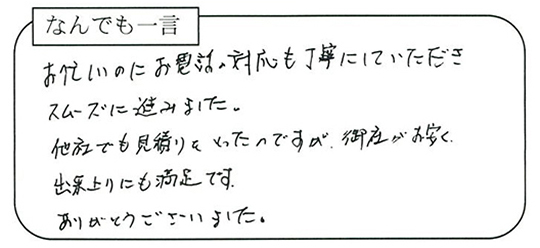 なんでも一言
お忙しいのにお電話の対応も丁寧にしていただき
スムーズに進みました。
他社でも見積りをとったのですが、御社がお安く、
出来上りにも満足です。
ありがとうございました。